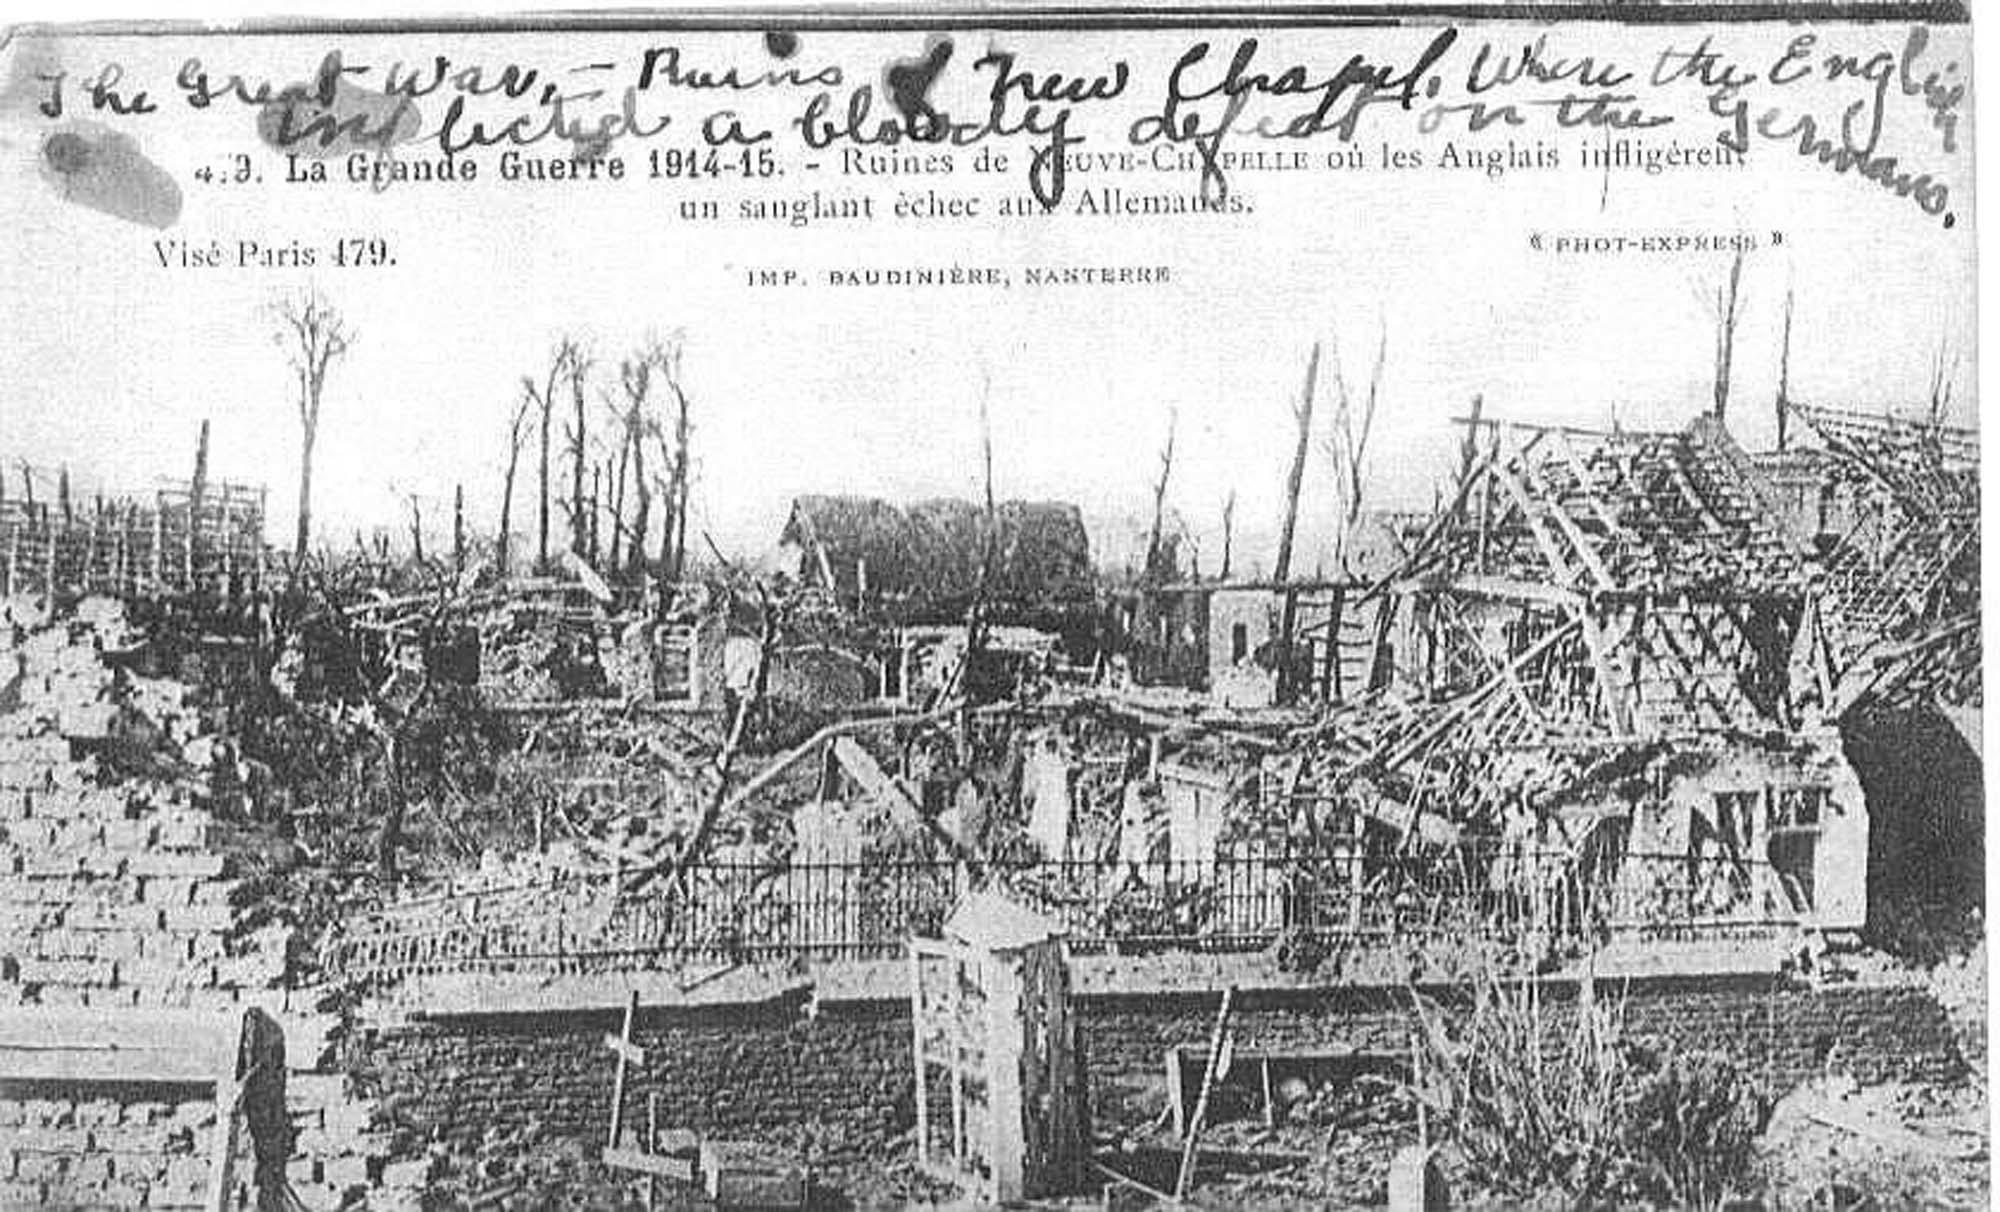 The Great War, - Ruins of New Chapel. Where the English
inflected a bloody defeat on the Germans.
La Grande Guerre 1914-15. - Ruines de NEUVE-CHAPELLE où les Anglais infligèrent
un sanglant èchec aux Allemands.
Visé Paris 479.
« PHOT-EXPRESS »
IMP. BAUDINIÈRE, NANTERRE